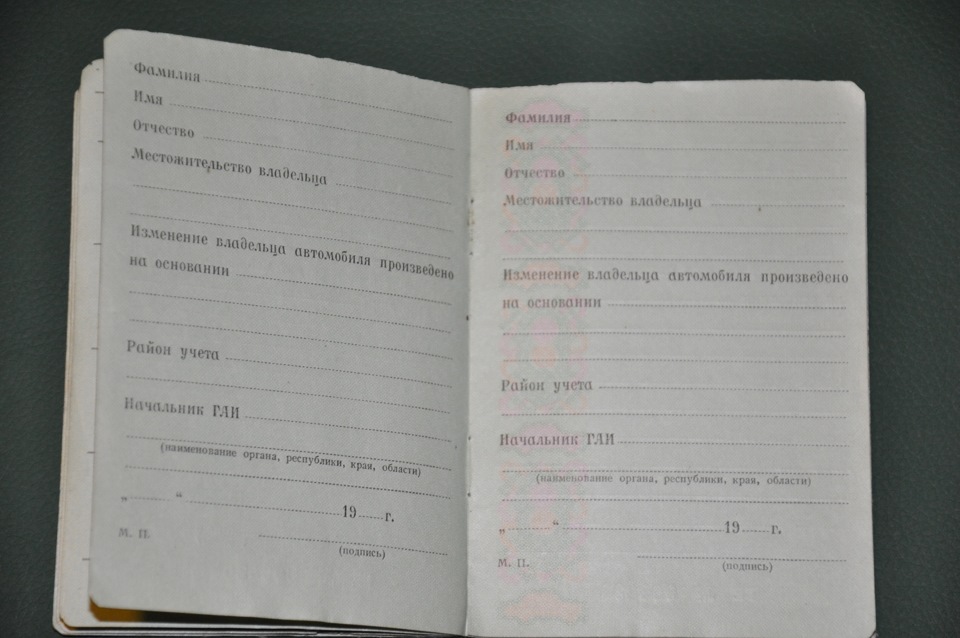 Фамилия
Имя
Отчество
Местожительство владельца
Изменение владельца автомобиля произведено
на основании
Район учета
Начальник ГАИ
(наименование органа, республики, края, области)
„ “ 19 г.
М. П.
(подпись)
Фамилия
Имя
Отчество
Местожительство владельца
Изменение владельца автомобиля произведено
на основании
Район учета
Начальник ГАИ
(наименование органа, республики, края, области)
„ “ 19 г.
М. П.
(подпись)